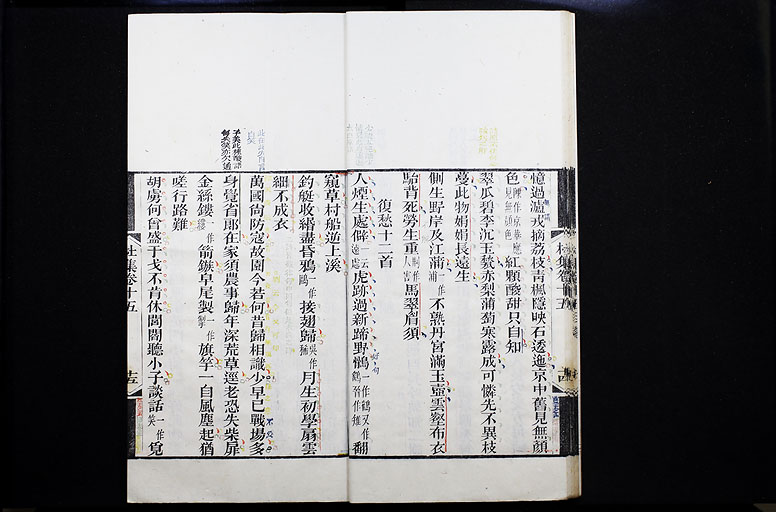 憶過瀘戎摘荔枝青楓隱映石逶迤京中舊見無顏
色紅顆酸甜只自知
翠瓜碧李沉玉甃赤梨蒲萄寒露成可憐先不異枝
蔓此物娟娟長遠生
側生野岸及江蒲一作浦不熟丹宮滿玉壺雲壑布衣
駘背死勞生重馬翠眉須
復愁十二首
人煙生處僻虎跡過新蹄野鶻翻
窺草村船逆上溪
釣艇收緡盡昏鴉一作接翅歸月生初學扇雲
細不成衣
萬國尚防寇故園今若何昔歸相識少早已戰場多
身覺省郎在家須農事歸年深荒草逕老恐失柴扉
金絲鏤箭鏃皂尾製旗竿一自風塵起猶
嗟行路難
胡虜何曾盛干戈不肯休閭閻聽小子談話一作笑覓
杜集卷十五